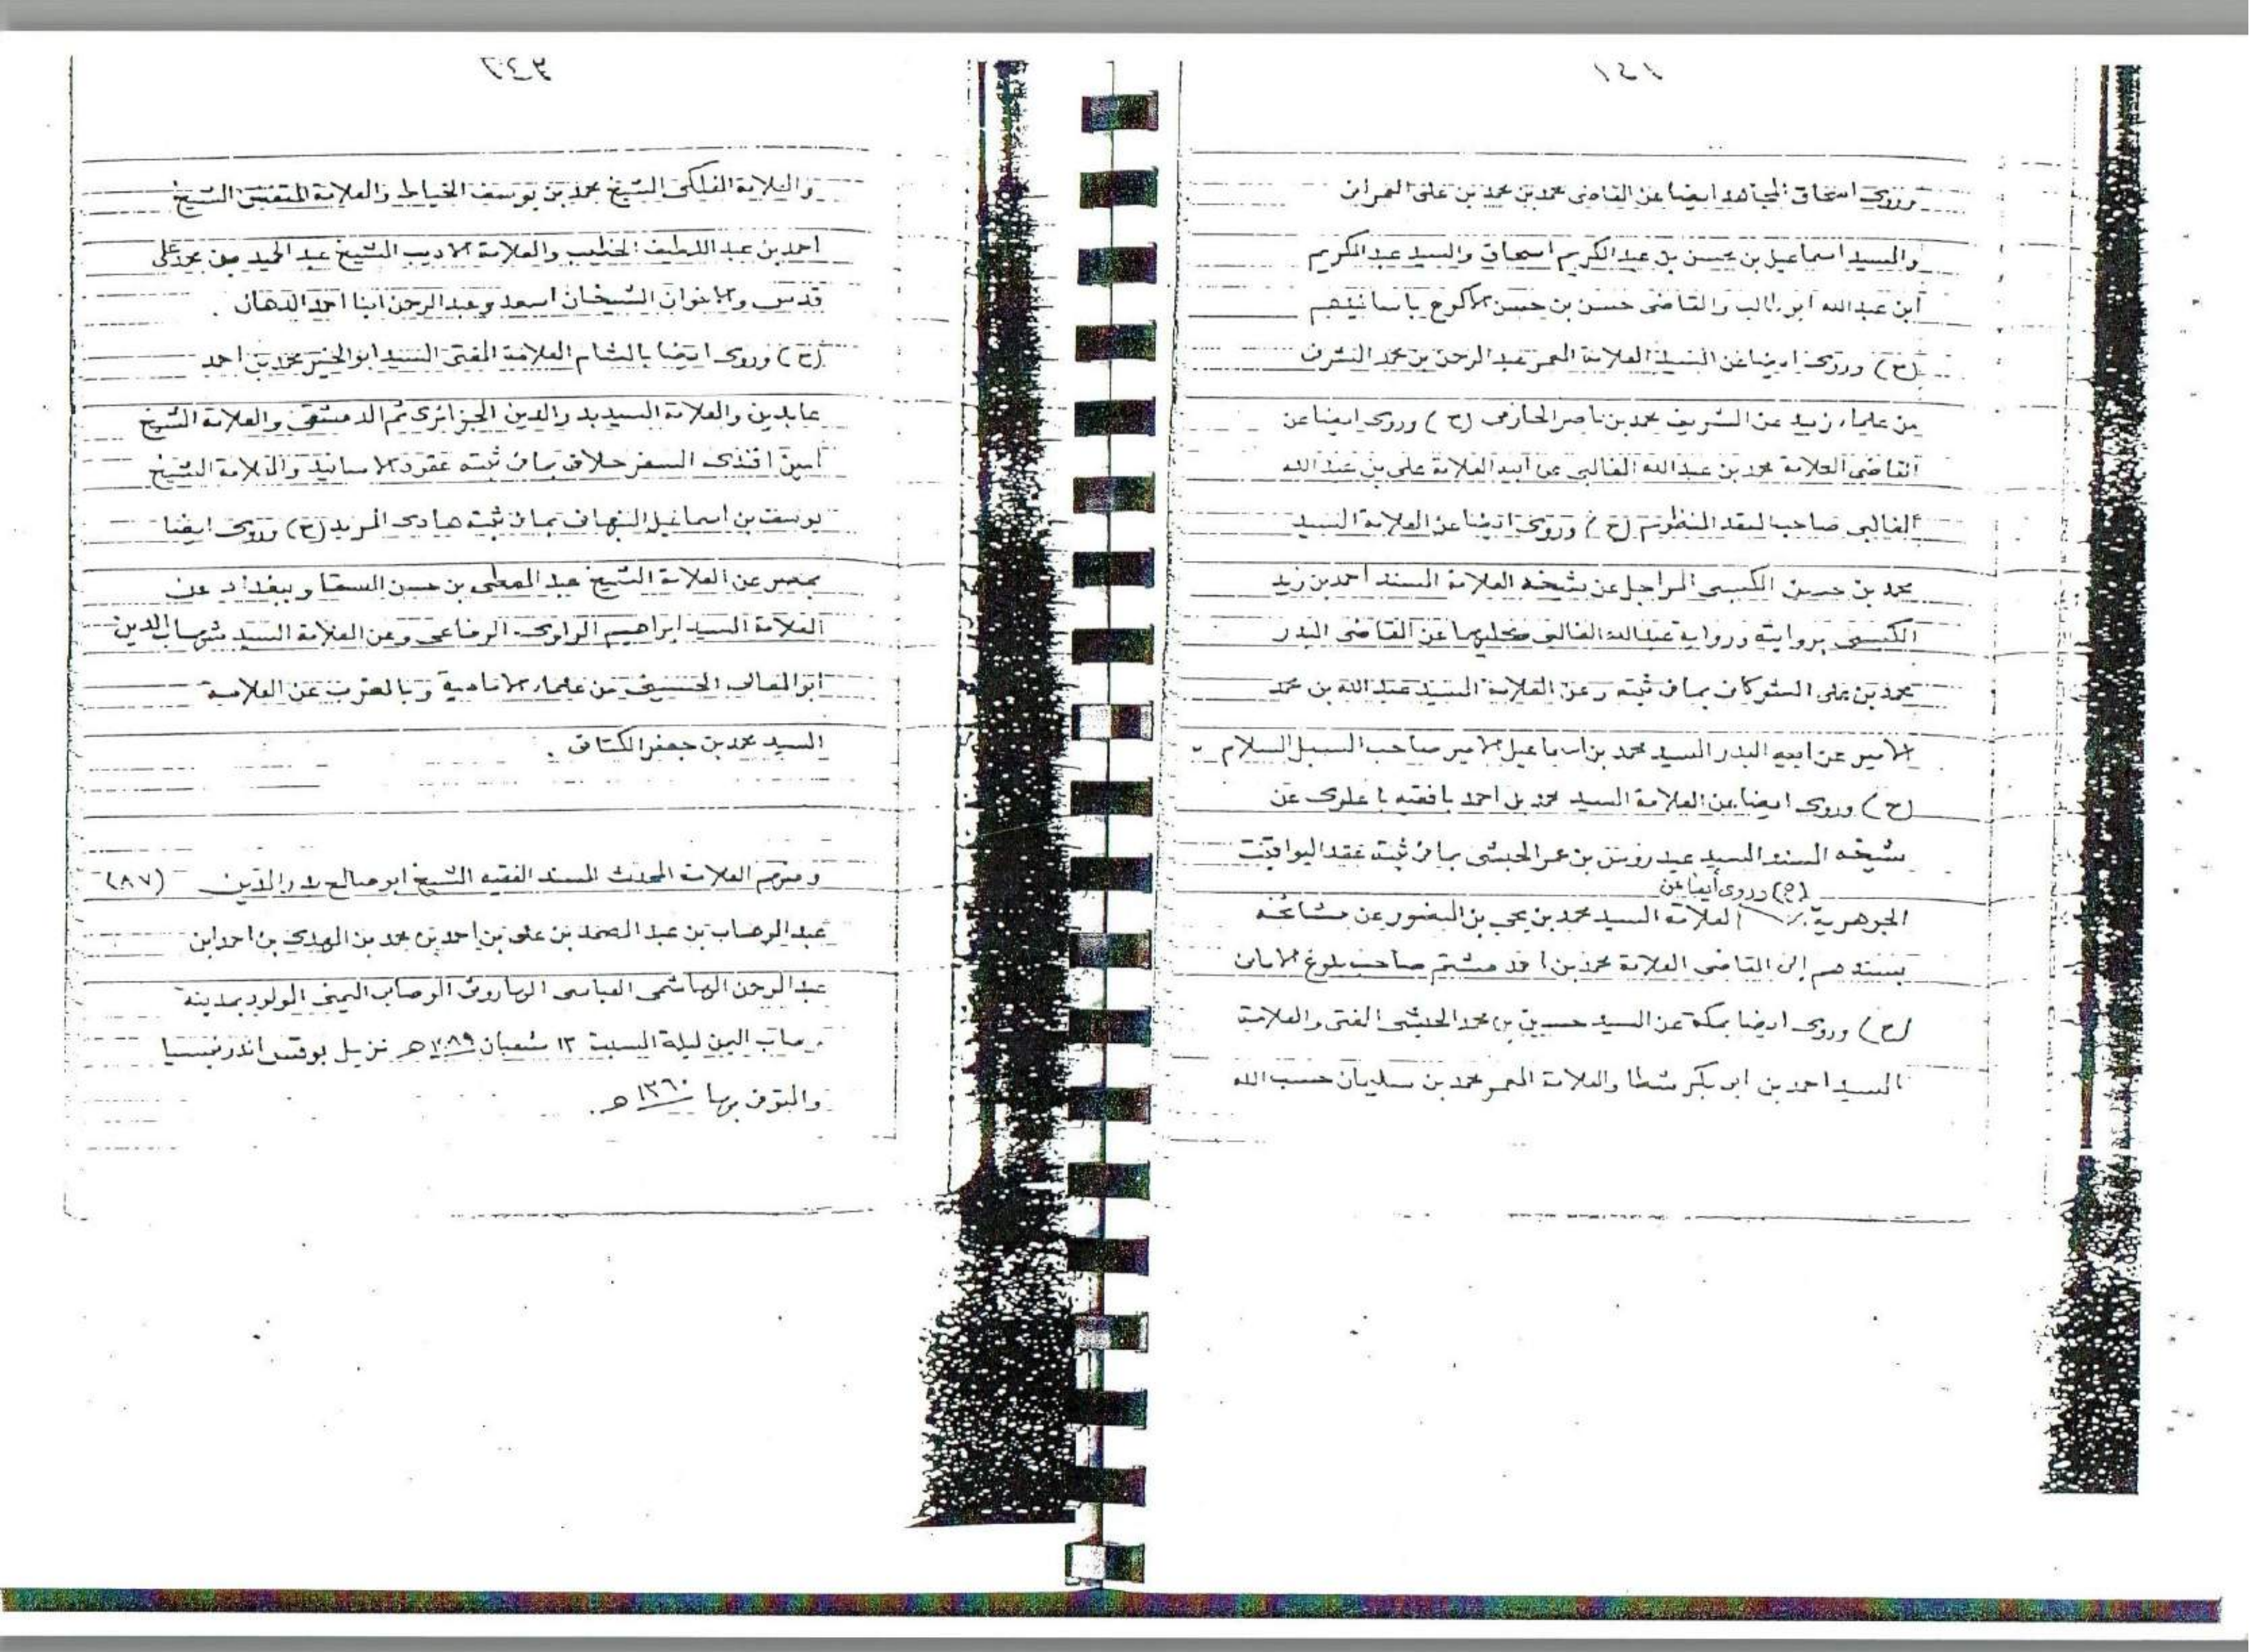 ١٤١
وروى اسحاق المجاهد ايضا عن القاضى محمد بن محمد بن على العمرانى
والسيد اسماعيل بن محسن بن عبد الكريم اسحاق والسيد عبد الكريم
ابن عبد الله ابو طالب والقاضى حسن بن حسن الاكوع باسانيدهم
(ح) وروى ايضا عن السيد العلامة المعمر عبد الرحمن بن محمد الشرفى
من علماء زبيد عن الشريف محمد بن ناصر الحازمى (ح) وروى ايضا عن
القاضى العلامة محمد بن عبد الله الغالبى عن ابيه العلامة على بن عبد الله
الغالبى صاحب العقد المنظوم (ح) وروى ايضا عن العلامة السيد
محمد بن حسن الكبسى المراجل عن شيخه العلامة المسند احمد بن زيد
الكبسى بروايته ورواية عبد الله الغالبى كليهما عن القاضى البدر
محمد بن على الشوكانى بما فى ثبته وعن العلامة السيد عبد الله بن محمد
الامير عن ابيه البدر السيد محمد بن اسماعيل الامير صاحب السبل السلام
(ح) وروى ايضا عن العلامة السيد محمد بن احمد بافقيه باعلوى عن
شيخه المسند السيد عيدروس بن عمر الحبشى بما فى ثبته عقد اليواقيت
(ح) وروى أيضا عن
الجوهرية العلامة السيد محمد بن يحى بن المنصور عن مشائخه
بسندهم إلى القاضى العلامة محمد بن احمد مشحم صاحب بلوغ الامانى
(ح) وروى ايضا بمكة عن السيد حسين بن محمد الحبشى المفتى والعلامة
السيد احمد بن ابو بكر شطا والعلامة المعمر محمد بن سليمان حسب الله
والعلامة الفلكى الشيخ محمد بن يوسف الخياط والعلامة المتفنن الشيخ
احمد بن عبد اللطيف الخطيب والعلامة الاديب الشيخ عبد الحميد بن محمد على
قدس والاخوان الشيخان اسعد وعبد الرحمن ابنا احمد الدهان .
(ح) وروى ايضا بالشام العلامة المفتى السيد ابو الخير محمد بن احمد
عابدين والعلامة السيد بدر الدين الجزائرى ثم الدمشقى والعلامة الشيخ
امين افندى السفرجلانى بما فى ثبته عقود الاسانيد والعلامة الشيخ
يوسف بن اسماعيل النبهانى بما فى ثبته هادى المريد (ح) وروى ايضا
بمصر عن العلامة الشيخ عبد المعطى بن حسن السقا وببغداد عن
العلامة السيد ابراهيم الراوى الرفاعى وعن العلامة السيد شهاب الدين
ابو المعالى الحسينى من علماء الامامية وبالمغرب عن العلامة
السيد محمد بن جعفر الكتانى .
ومنهم العلامة المحدث المسند الفقيه الشيخ ابو صالح بدر الدين (٨٧)
عبد الوهاب بن عبد الصمد بن على بن احمد بن محمد بن المهدى بن احمد ابن
عبد الرحمن الهاشمى العباسى الهارونى الوصابى اليمنى المولود بمدينة
وصاب اليمن ليلة السبت ١٢ شعبان ١٢٨٩ هـ نزيل اندونيسيا
والمتوفى بها ١٣٦٠ هـ .